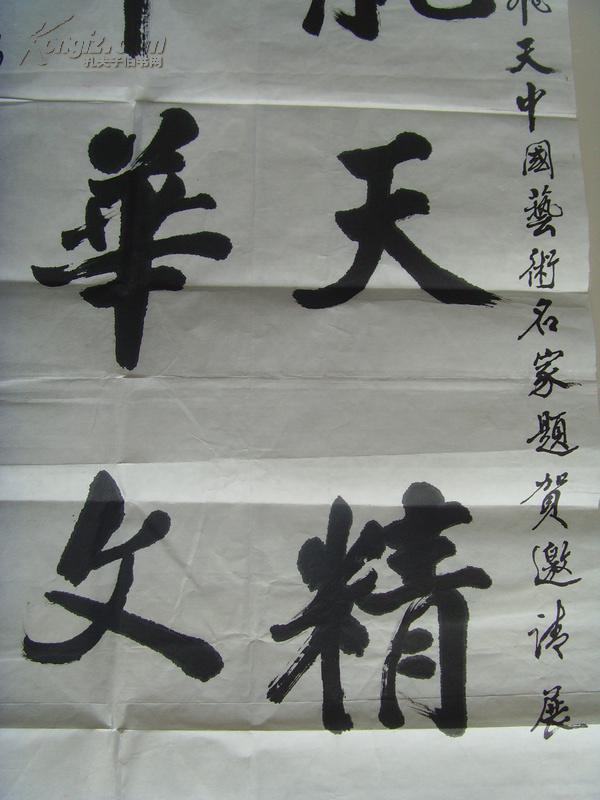 飛天中國藝術名家題賀邀請展
天精
華文
Kongfz.com
孔夫子旧书网